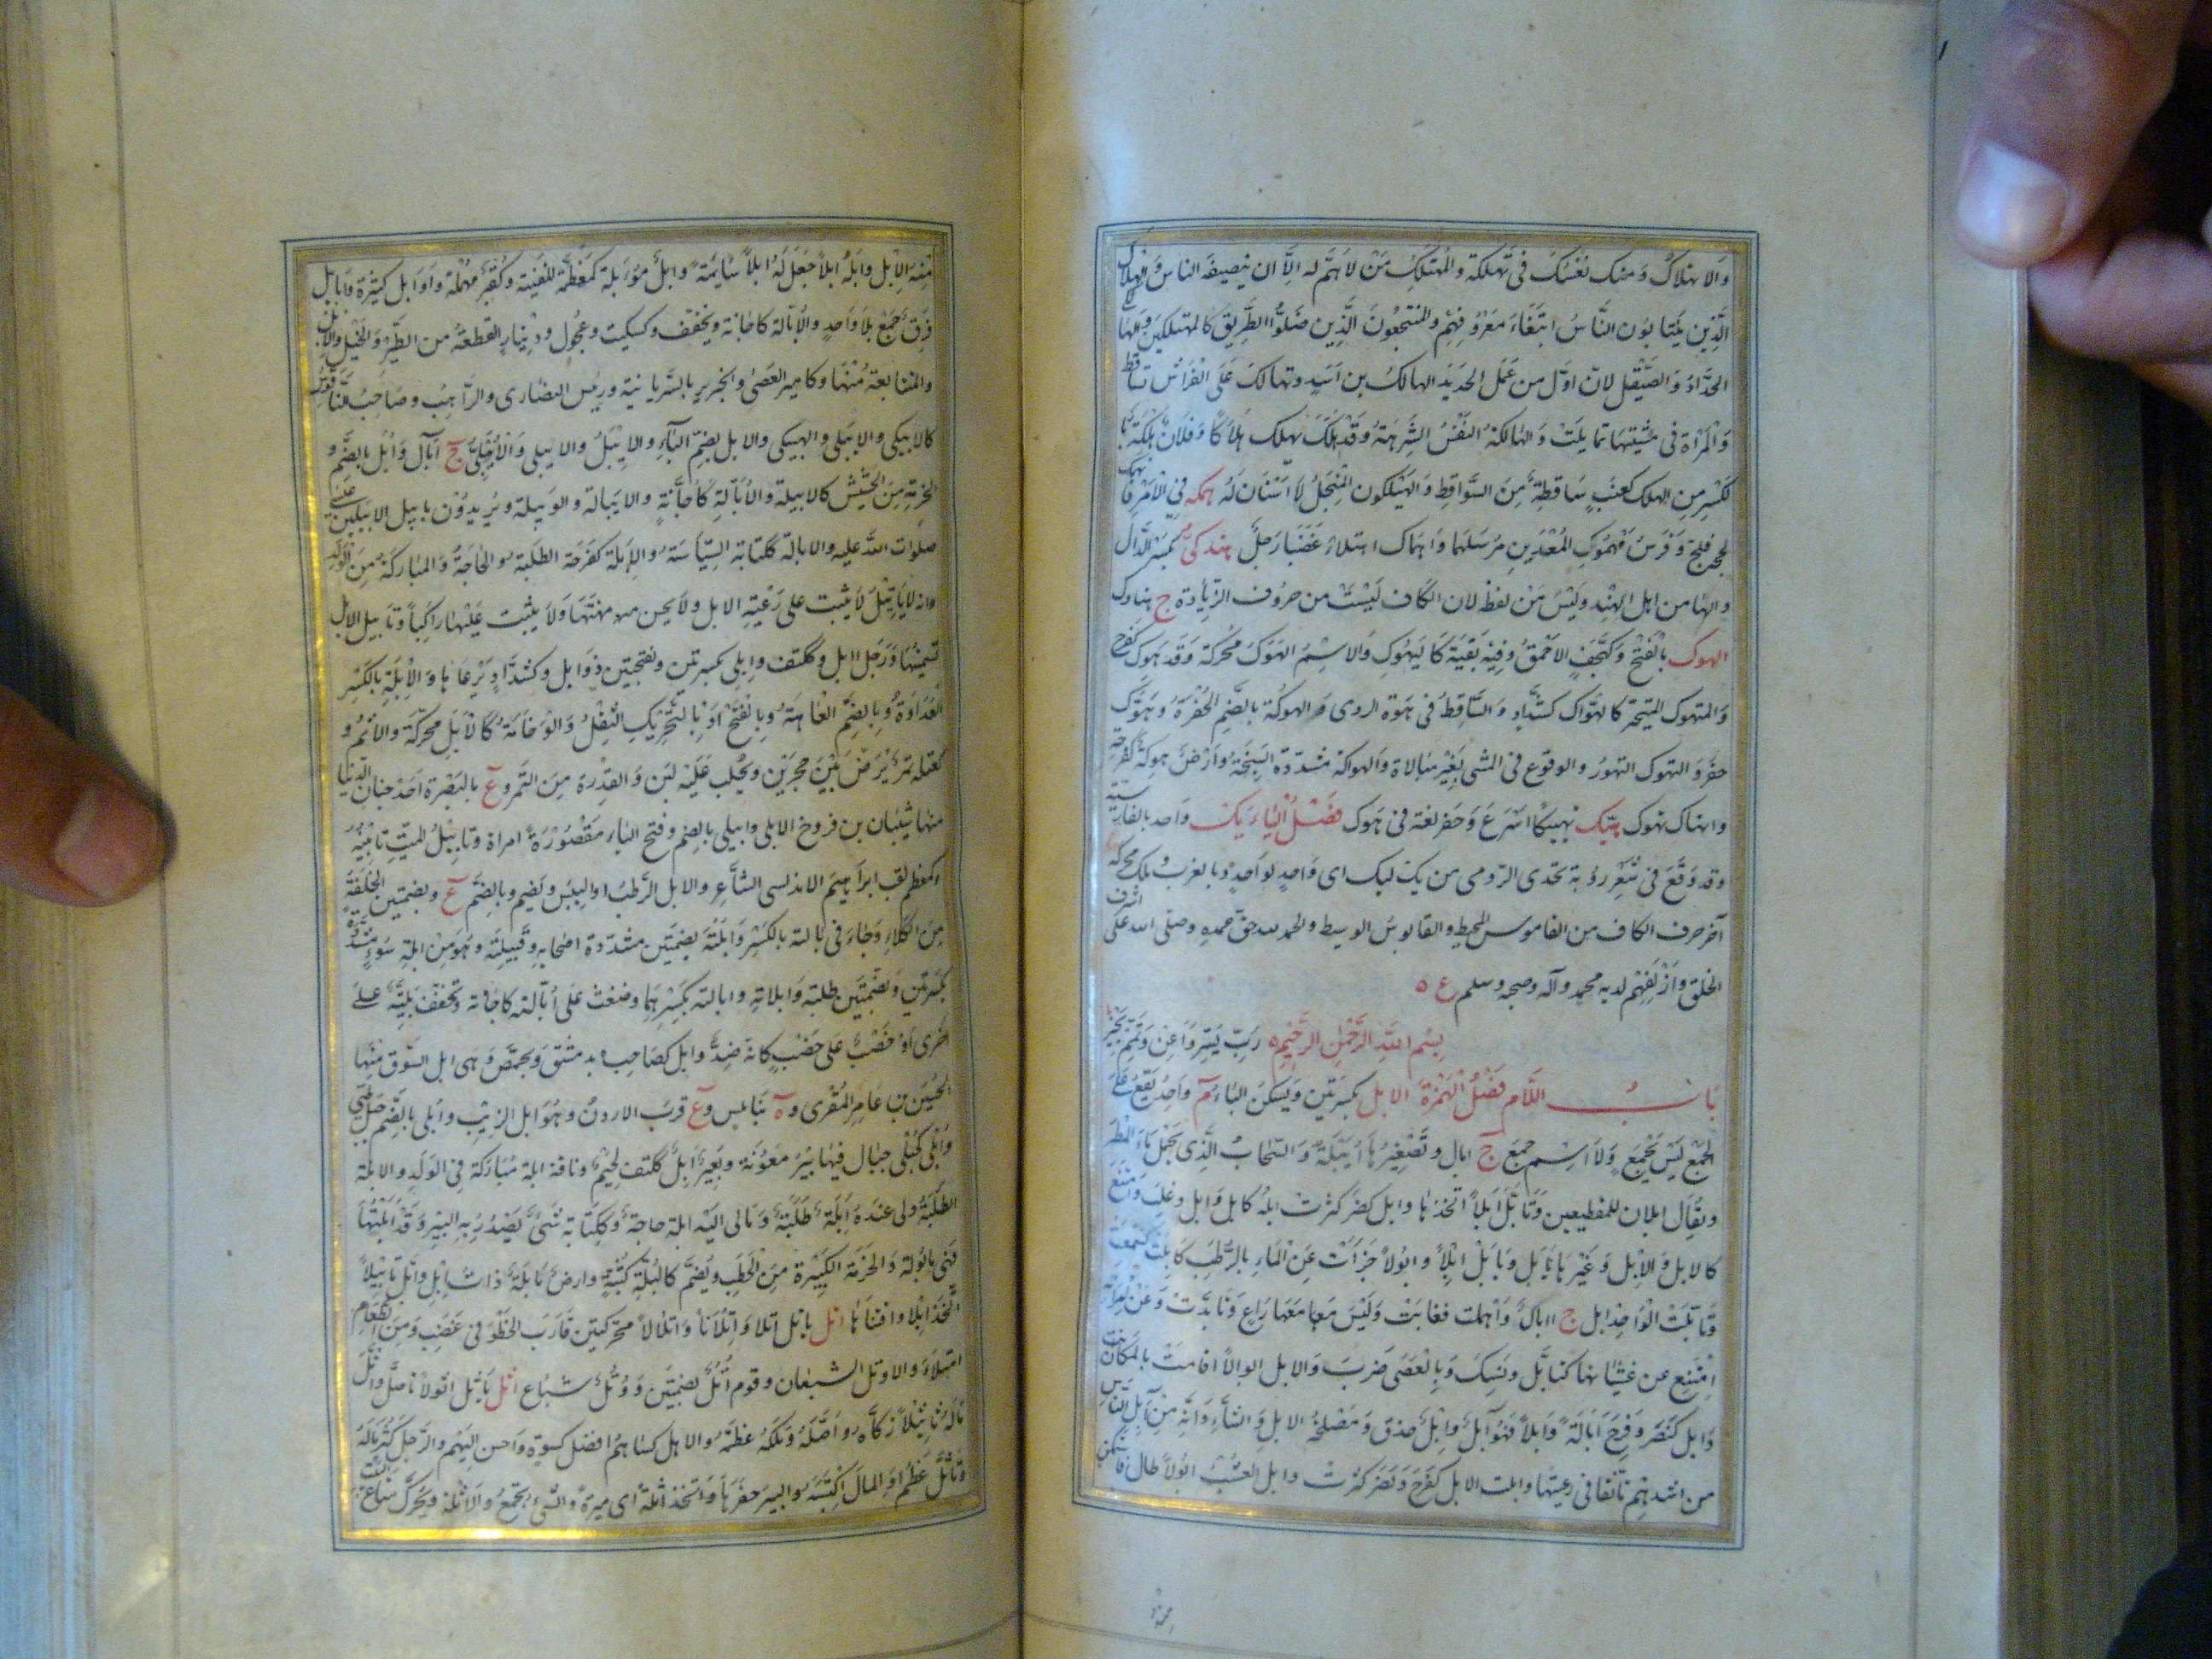 والاهتلاك ومنك نفسك فى تهلكة والمهتلك من لا هم له الا ان يتضيفه الناس والهلاك
الذين ينتابون الناس ابتغاء معروفهم والمنتجعون الذين ضلوا الطريق كالمهتلكين والهالكى
الحداد والصيقل لان اول من عمل الحديد الهالك بن اسد وتهالك على الفراش تساقط
والمرأة فى مشيتها تمايلت والهالكة النفس الشرهة وقد هلك يهلك هلاكا وفلان هلكة بالكسر
من الهلك كعنب ساقطة من السواقط والهيلكون المنجل لا اسنان له همكه فى الامر فانهمك
لججه فلج وفرس مهموك المعدين مرسلهما واهماك امتلاء غضبا رجل هندكى بكسر الدال
والهاء من اهل الهند وليس من لفظه لان الكاف ليست من حروف الزيادة ج هنادك
الهوك بالفتح وكهجف الاحمق وفيه بقية كاليهوك والاسم الهوك محركة وقد هوك كفرح
والمتهوك المتحير كالهواك كشداد والساقط فى هوة الردى والهوكة بالضم الحفرة وهوك
حفر والتهوك التهور والوقوع فى الشى بغير مبالاة والهواكة مشددة السبخة وارض هوكة كفرحة
وانهاك تهوك هيك تهييكا اسرع وحفر لغة فى هوك فصل الياء يك واحد بالفارسية
وقد وقع فى شعر رؤبة تحدى الرومى من يك ليك اى واحد لواحد وبالغرب وبلك محركة
آخر حرف الكاف من القاموس المحيط والقابوس الوسيط والحمد لله حق حمده وصلى الله على اشرف
الخلق وازلفهم لديه محمد وآله وصحبه وسلم
بسم الله الرحمن الرحيم رب يسر واعن وتمم بخير
باب اللام فصل الهمزة الابل بكسرتين وتسكن الباء م واحد يقع على
الجمع ليس بجمع ولا اسم جمع ج ابال وتصغيرها ابيلة والسحاب الذى يحمل ماء المطر
ويقال ابلان للقطيعين وتأبل ابلا اتخذها وابل كضرب كثرت ابله كابل وابل وغلب وامتنع
كالابل والابل وغيرها تأبل وتأبل ابلا وابولا جزأت عن الماء بالرطب كابلت كسمعت
وتأبلت الواحد ابل ج ابال واهملت فغابت وليس معها راع وتأبدت وعن امرأته
امتنع عن غشيانها كتأبل ونسك وبالعصى ضرب والابل ابولا اقامت بالمكان
وابل كنصر وفرح ابالة وابلا فهو آبل وابل حذق ومصلحة الابل والشاء وانه من آبل الناس
من اشدهم تأنقا فى رعيتها وابلت الابل كفرح ونصر كثرت وابل العشب ابولا طال فاستمكن
منه الابل وابله ابلا جعل له ابلا سائمة وابل مؤبلة كمعظمة للقنية وكقبر مهملة واوابل كثيرة وابابيل
فرق جمع بلا واحد والابالة كاجانة ويخفف وكسكيت وعجول ودينار القطعة من الطير والخيل والابل
والمتتابعة منها وكامير العصى والحزين بالسريانية ورئيس النصارى والراهب وصاحب الناقوس
كالايبلى والايبلى والهيبلى والابل بضم الباء والايبل والابيلى والايبلى ج آبال وابل بالضم و
الحزمة من الحشيش كالابيلة والابالة كاجانة والايبالة والوبيلة ويريدون بابيل الابيلين عيسى
صلوات الله عليه والابالة ككتابة السياسة والابلة كفرحة الطلبة والحاجة والمباركة من الولد
وانه لا يأتبل لا يثبت على رعية الابل ولا يحسن مهنتها ولا يثبت عليها راكبا وتأبيل الابل
تسمينها ورجل ابل وككتف وابلى بكسرتين وبفتحتين ذو ابل وكشداد يرعاها والابلة بالكسر
العداوة وبالضم العاهة وبالفتح او بالتحريك الثقل والوخامة كالابل محركة والاثم و
كعتلة تمر يرض بين حجرين ويحلب عليه لبن والقدرة من التمر وع بالبصرة احد جنان الدنيا
منها شيبان بن فروخ الابلى وابيلى بالضم وفتح الباء مقصورة امراة وتأبيل الميت تأبينه
كمعظم لقب ابراهيم الاندلسى الشاعر والابل الرطب او اليبس ويضم وبالضم ع وبضمتين الخلفة
من الكلاء وجاء فى ابالته بالكسر وابلته بضمتين مشددة اصحابه وقبيلته وهو من ابلة سوء مشددة
بكسرتين وبضمتين طلبة وابلاته وابالته بكسرهما وضغث على ابالة كاجانة وتخفف بلية على
اخرى او خصب على خصب كانه ضد وابل كصاحب ه بدمشق وبحمص وهى ابل السوق منها
الحسين بن عامر المقرى وه بنابلس وع قرب الاردن وهو ابل الزيت وابلى بالضم جبل
وابلى كحبلى جبال فيها بئر معونة وبعير ابل ككتف لحيم وناقة ابلة مباركة فى الولد والابلة
الطلبة ولى عنده ابلة طلبة ومالى اليه ابلة حاجة وككتابة شىء يصدر به البئر وقد ابلتها
فهى مأبولة والحزمة الكبيرة من الحطب ويضم كالبلة كثبة وارض مأبلة ذات ابل وابل تأبيلا
اتخذ ابلا واقتناها اتل يأتل اتلا واتلانا واتلالا محركتين قارب الخطو فى غضب ومن الطعام
امتلاء والاوتل الشبعان وقوم اتل بضمتين ووتل شباع اثل يأثل اثولا تأصل واثل
ماله تأثيلا زكاه واصله وملكه عظمه والاهل كساهم افضل كسوة واحسن اليهم والرجل كثر ماله
وتأثل عظم والمال اكتسبه والبئر حفرها واتخذ اثلة اى ميرة والشىء تجمع والاثلة ويحرك متاع البيت